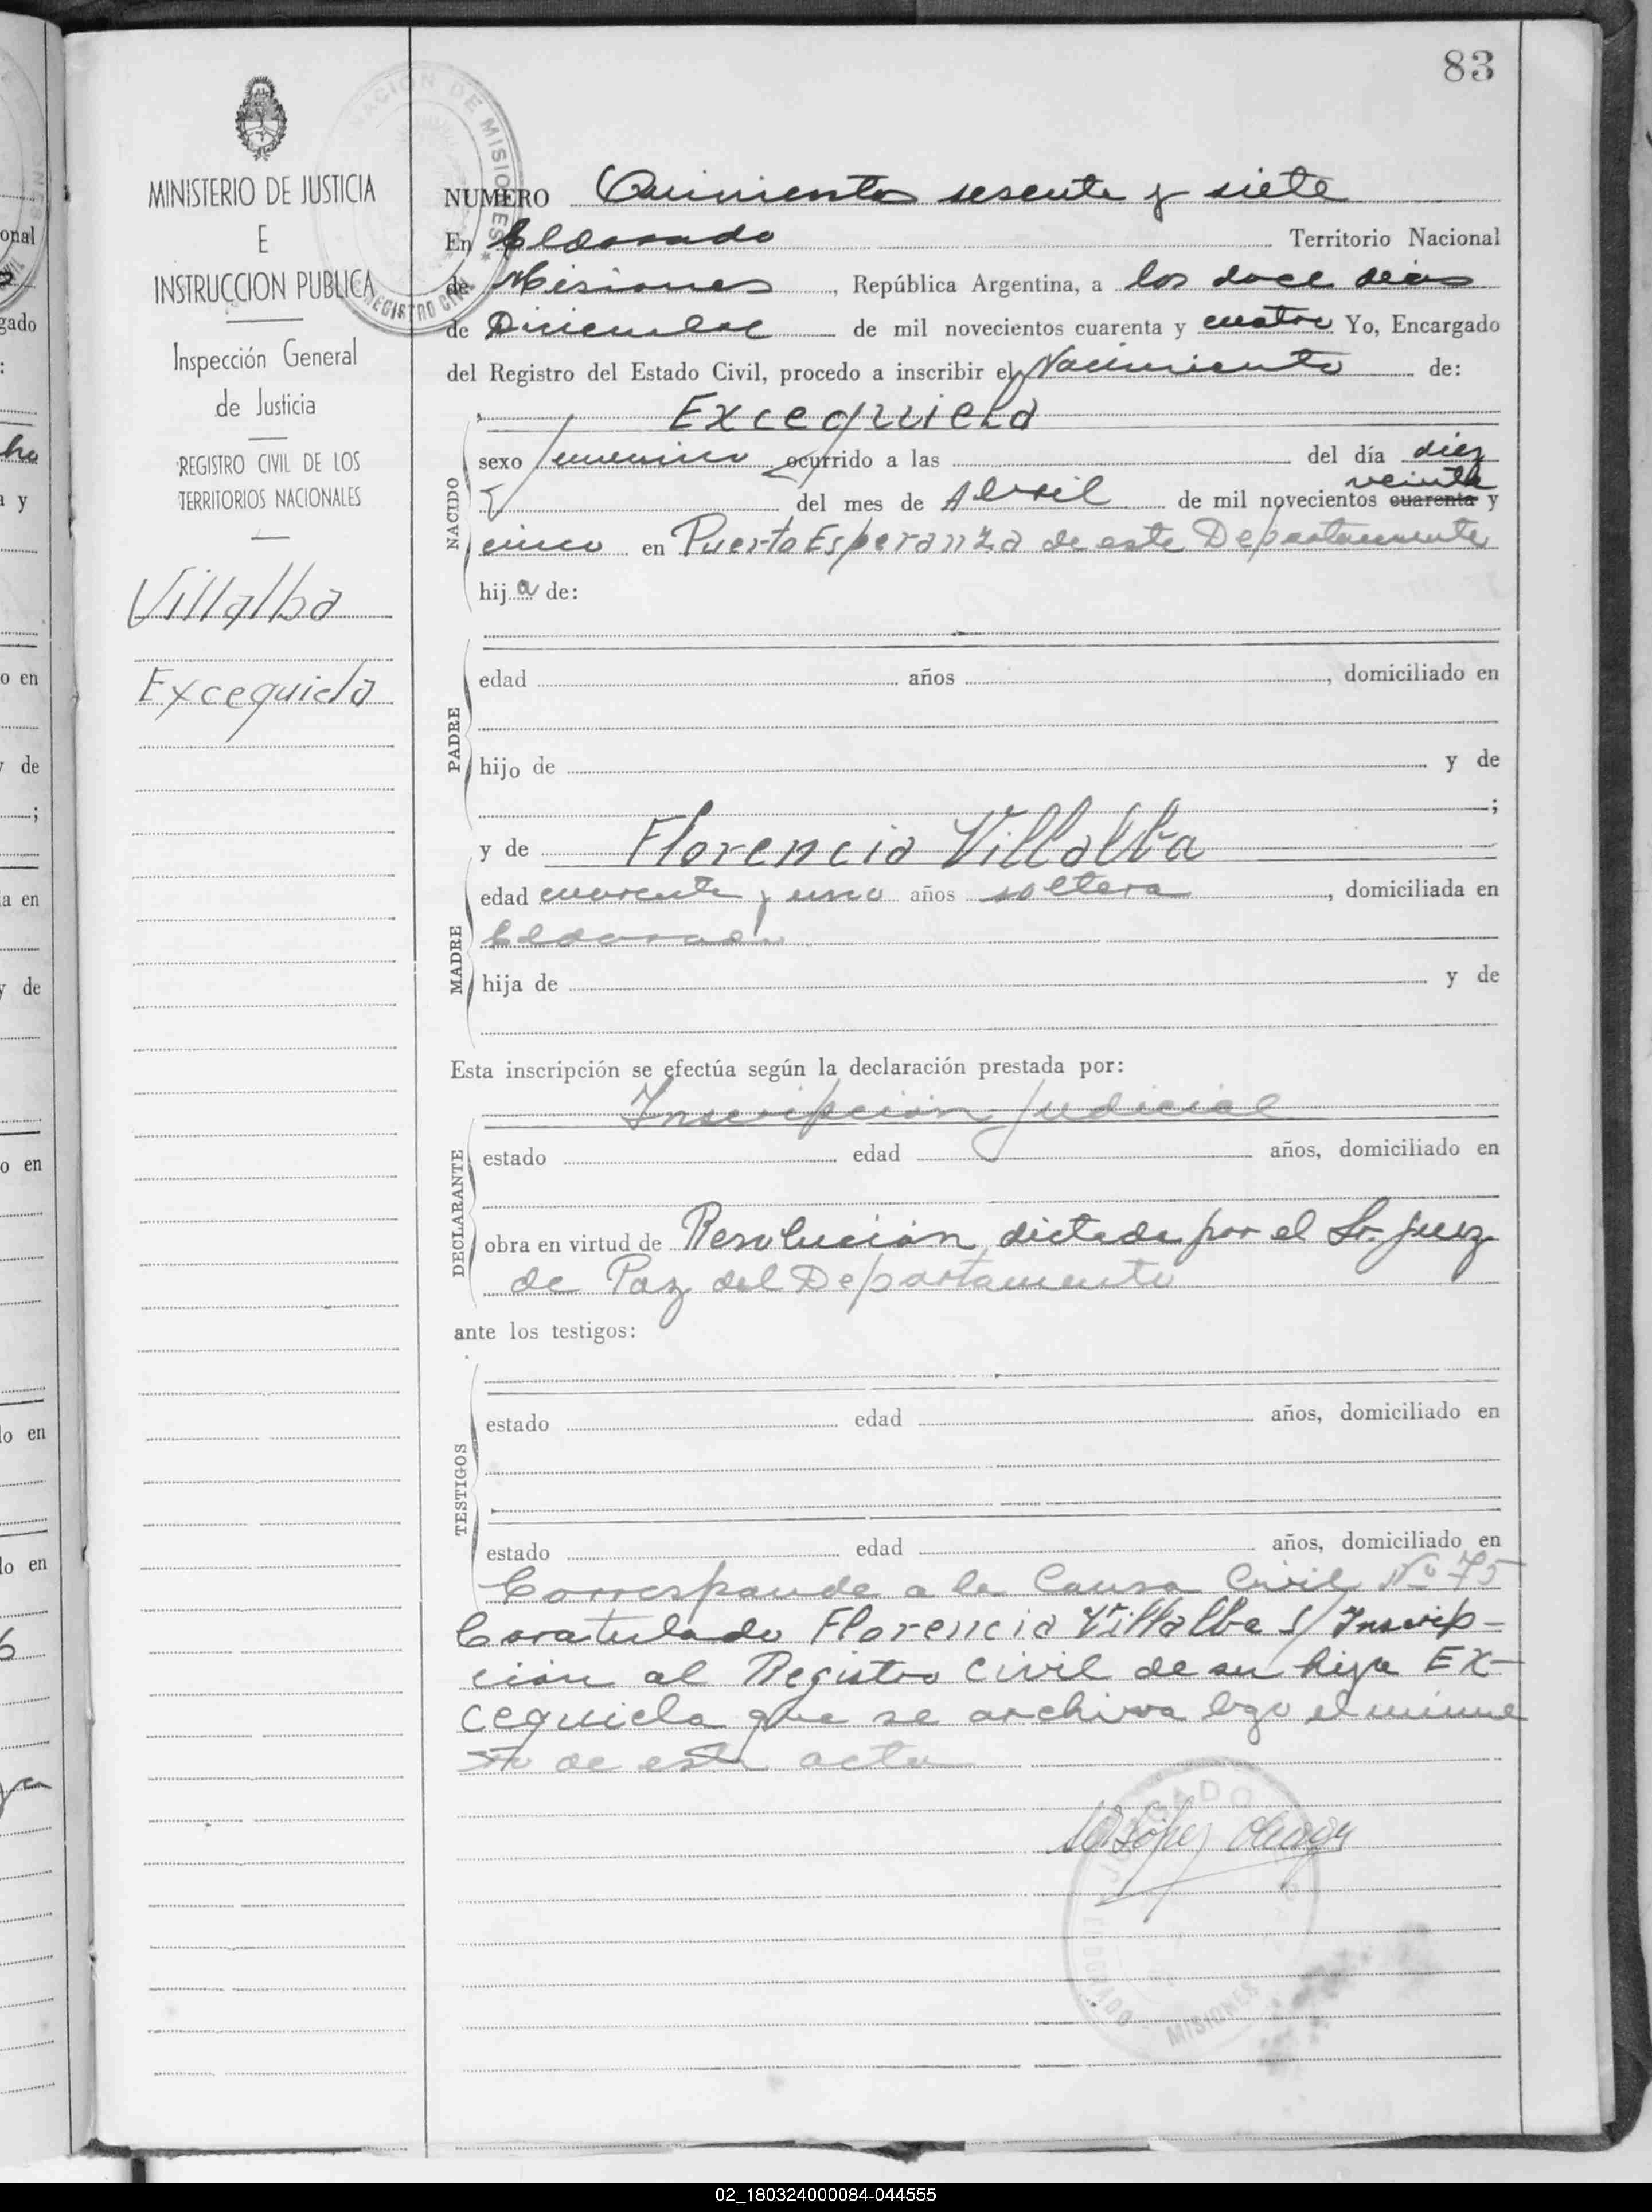 83
MINISTERIO DE JUSTICIA
E
INSTRUCCION PUBLICA
Inspección General
de Justicia
REGISTRO CIVIL DE LOS
TERRITORIOS NACIONALES
Villalba
Excequiela
NUMERO Quinientos sesenta y siete
En Eldorado Territorio Nacional
de Misiones, República Argentina, a los doce días
de Diciembre de mil novecientos cuarenta y cuatro Yo, Encargado
del Registro del Estado Civil, procedo a inscribir el Nacimiento de:
Excequiela
NACIDO
sexo femenino ocurrido a las del día diez
veinte
del mes de Abril de mil novecientos cuarenta y
cinco en Puerto Esperanza de este Departamento
hija de:
PADRE
edad años , domiciliado en
hijo de y de
;
y de Florencia Villalba
MADRE
edad cuarenta y uno años soltera, domiciliada en
Eldorado
hija de y de
Esta inscripción se efectúa según la declaración prestada por:
Inscripción judicial
DECLARANTE
estado edad años, domiciliado en
obra en virtud de Resolución dictada por el Sr. Juez
de Paz del Departamento
ante los testigos:
TESTIGOS
estado edad años, domiciliado en
estado edad años, domiciliado en
Corresponde a la Causa Civil No 75
Caratulado Florencia Villalba s/ Inscrip-
ción al Registro Civil de su hija Ex-
cequiela que se archiva bajo el núme
ro de esta acta
JUZGADO
MISIONES
02_180324000084-044555